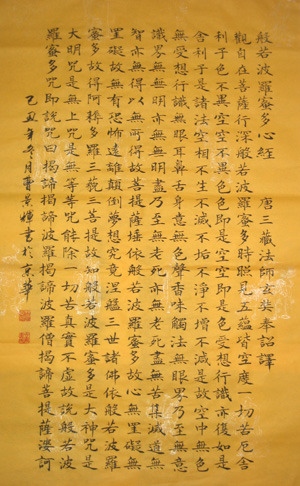 般若波羅蜜多心經 唐三藏法師玄奘奉詔譯
觀自在菩薩行深般若波羅蜜多時照見五蘊皆空度一切苦厄舍
利子色不異空空不異色色即是空空即是色受想行識亦復如是
舍利子是諸法空相不生不滅不垢不淨不增不減是故空中無色
無受想行識無眼耳鼻舌身意無色聲香味觸法無眼界乃至無意
識界無無明亦無無明盡乃至無老死亦無老死盡無苦集滅道無
智亦無得以無所得故菩提薩埵依般若波羅蜜多故心無罣礙無
罣礙故無有恐怖遠離顛倒夢想究竟涅槃三世諸佛依般若波羅
蜜多故得阿耨多羅三藐三菩提故知般若波羅蜜多是大神咒是
大明咒是無上咒是無等等咒能除一切苦真實不虛故說般若波
羅蜜多咒即說咒曰揭諦揭諦波羅揭諦波羅僧揭諦菩提薩婆訶
己丑年冬月曹景書於京華